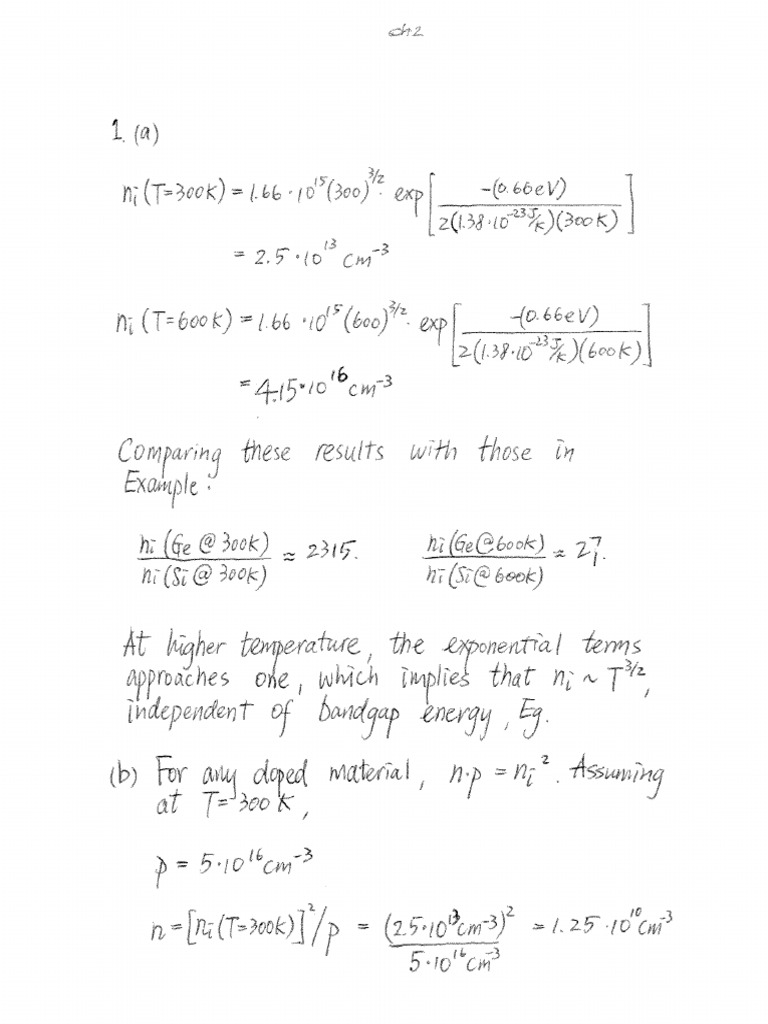 ch2
1. (a)
ni (T=300K) = 1.66 · 10^15 (300)^3/2 · exp [ -(0.66eV) / 2(1.38·10^-23 J/K)(300K) ]
= 2.5 · 10^13 cm^-3
ni (T=600K) = 1.66 · 10^15 (600)^3/2 · exp [ -(0.66eV) / 2(1.38·10^-23 J/K)(600K) ]
= 4.15 · 10^16 cm^-3
Comparing these results with those in
Example :
ni (Ge @ 300K) / ni (Si @ 300K) ≈ 2315. ni (Ge @ 600K) / ni (Si @ 600K) ≈ 27.
At higher temperature, the exponential terms
approaches one, which implies that ni ~ T^3/2,
independent of bandgap energy, Eg.
(b) For any doped material, n·p = ni^2. Assuming
at T = 300 K,
p = 5·10^16 cm^-3
n = [ni (T=300K)]^2 / p = (2.5·10^13 cm^-3)^2 / 5·10^16 cm^-3 = 1.25 · 10^10 cm^-3